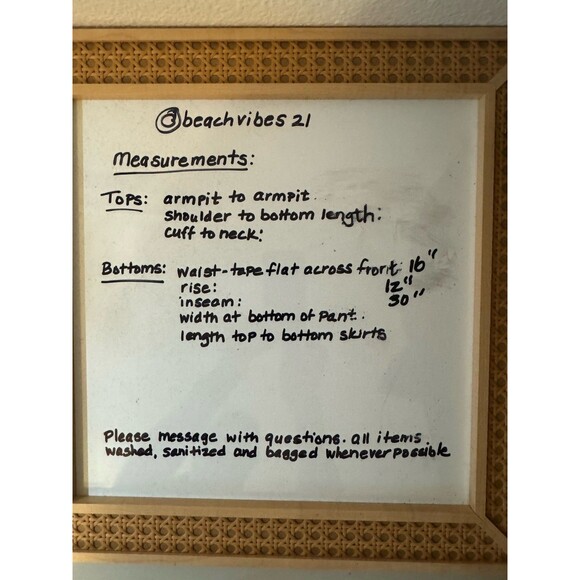 @beachvibes 21
Measurements:
Tops: armpit to armpit.
shoulder to bottom length:
cuff to neck:
Bottoms: waist-tape flat across front: 16"
rise: 12"
inseam: 30"
width at bottom of pant.
length top to bottom skirts
Please message with questions. all items.
washed, sanitized and bagged whenever possible